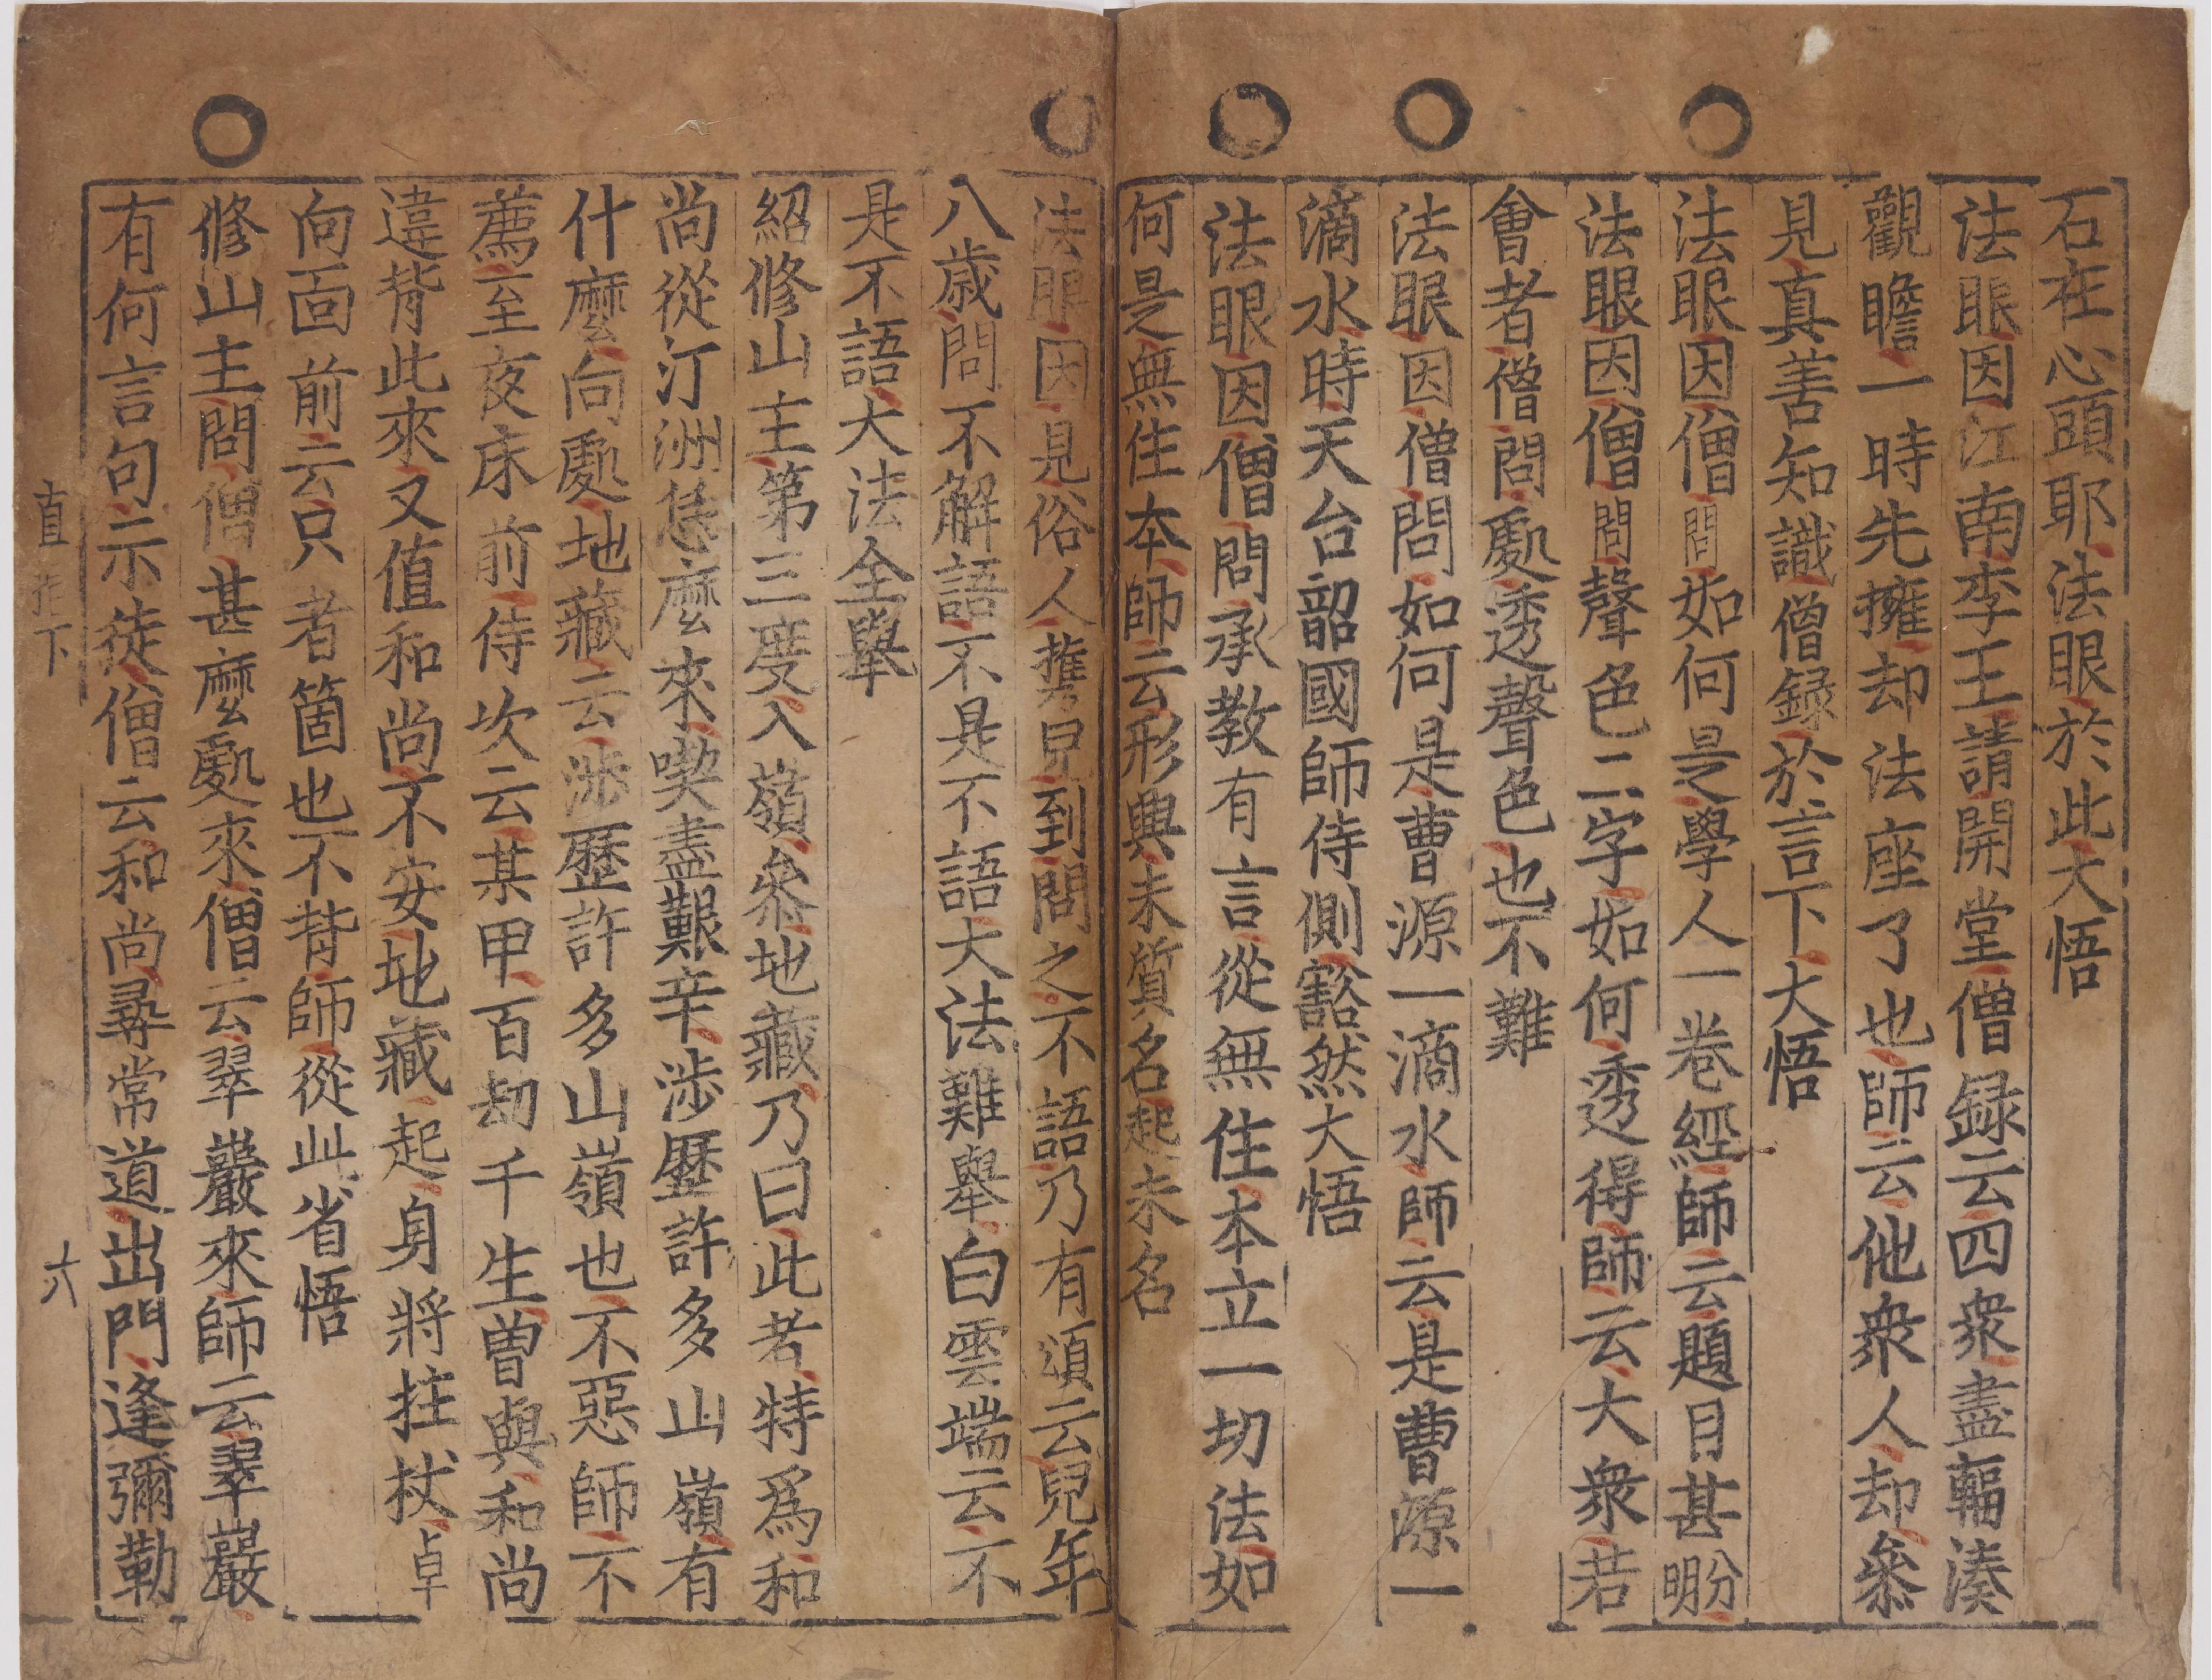 石在心頭耶法眼於此大悟
法眼因江南李王請開堂僧録云四衆盡輻湊
觀瞻一時先擁却法座了也師云他衆人却叅
見真善知識僧録於言下大悟
法眼因僧問如何是學人一卷經師云題目甚朙
法眼因僧問聲色二字如何透得師云大衆若
會者僧問處透聲色也不難
法眼因僧問如何是曹源一滴水師云是曹源一
滴水時天台韶國師侍側豁然大悟
法眼因僧問承教有言從無住本立一切法如
何是無住本師云形興未質名起未名
法眼因見俗人携兒到問之不語乃有頌云兒年
八歲問不解語不是不語大法難舉白雲端云不
是不語大法全舉
紹修山主第三度入嶺叅地藏乃曰此者特爲和
尚從汀洲恁麼來喫盡艱辛涉歷許多山嶺有
什麼向處地藏云涉歷許多山嶺也不惡師不
薦至夜床前侍次云某甲百劫千生曾與和尚
違背此來又值和尚不安地藏起身將拄杖卓
向面前云只者箇也不背師從此省悟
修山主問僧甚麼處來僧云翠巖來師云翠巖
有何言句示徒僧云和尚尋常道出門逢彌勒
直指下
六